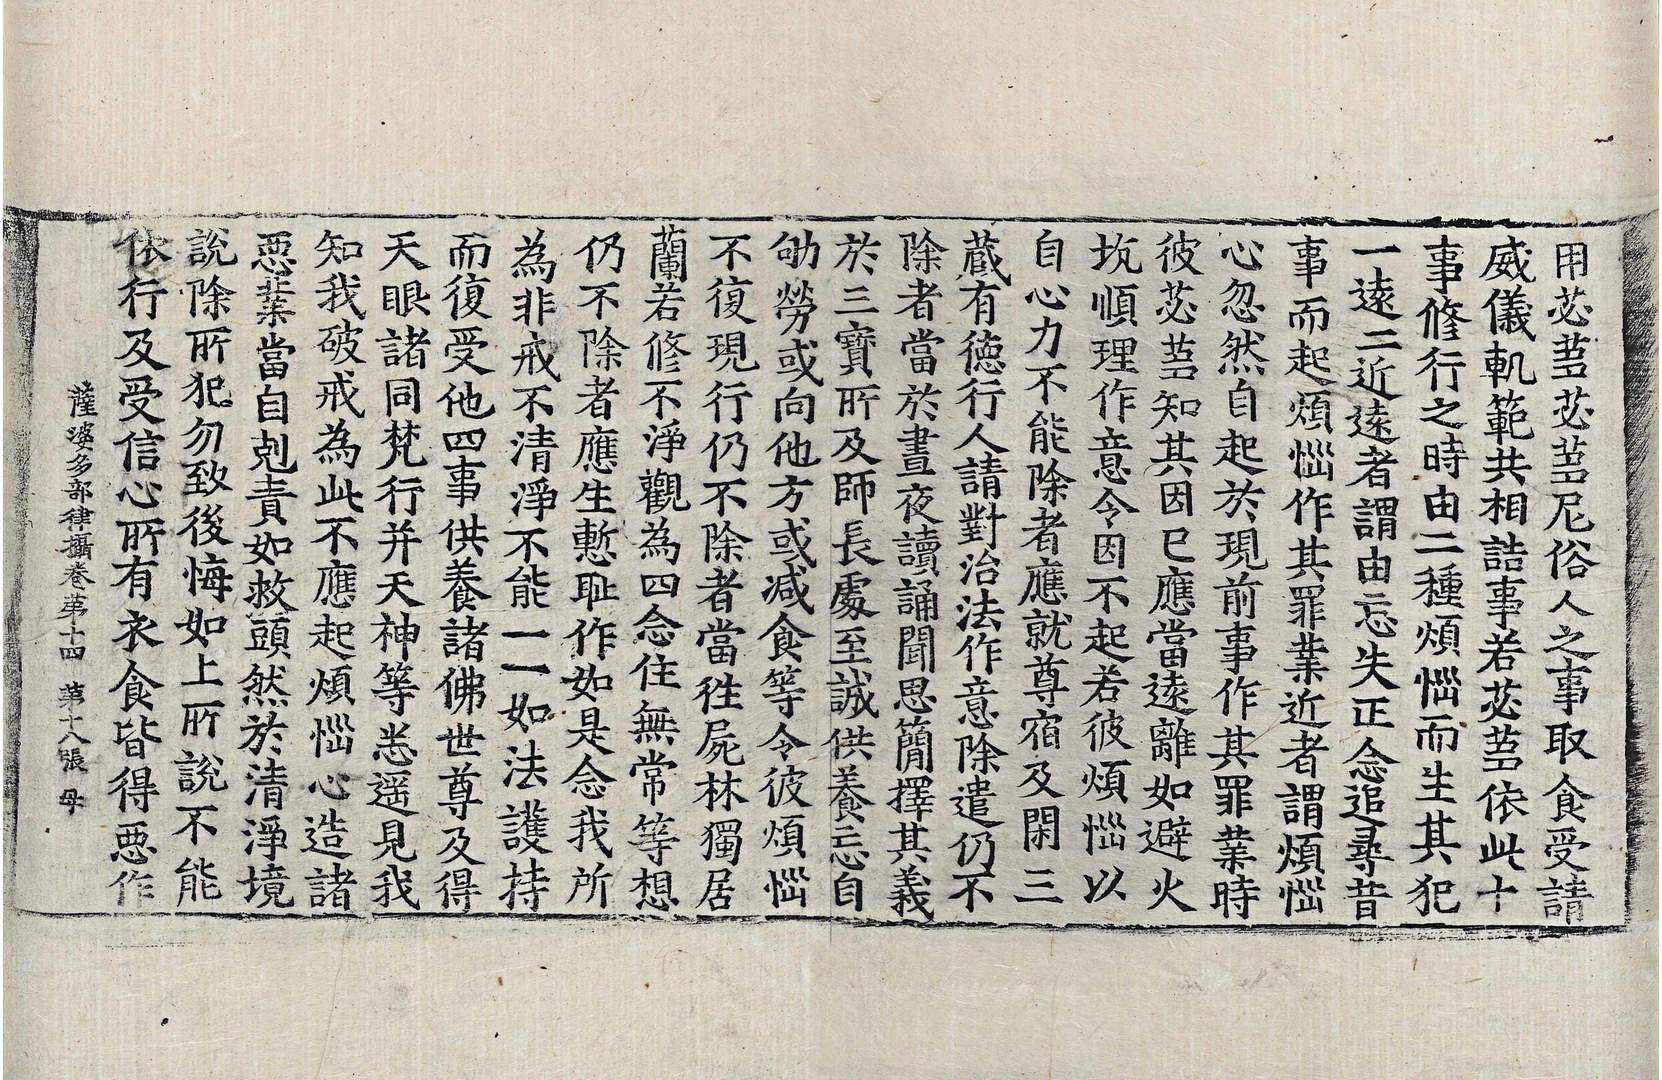 用苾蒭苾蒭尼俗人之事取食受請
威儀軌範共相詰事若苾蒭依此十
事修行之時由二種煩惱而生其犯
一遠二近遠者謂由忘失正念追尋昔
事而起煩惱作其罪業近者謂煩惱
心忽然自起於現前事作其罪業時
彼苾蒭知其因已應當遠離如避火
坑順理作意令因不起若彼煩惱以
自心力不能除者應就尊宿及閑三
蔵有徳行人請對治法作意除遣仍不
除者當於晝夜讀誦聞思簡擇其義
於三寶所及師長處至誠供養忘自
劬勞或向他方或減食等令彼煩惱
不復現行仍不除者當往屍林獨居
蘭若修不淨觀為四念住無常等想
仍不除者應生慙耻作如是念我所
為非戒不清淨不能一一如法護持
而復受他四事供養諸佛世尊及得
天眼諸同梵行并天神等悉遥見我
知我破戒為此不應起煩惱心造諸
惡業當自剋責如救頭然於清淨境
說除所犯勿致後悔如上所說不能
依行及受信心所有衣食皆得惡作
薩婆多部律攝卷苐十四 苐十八張 母